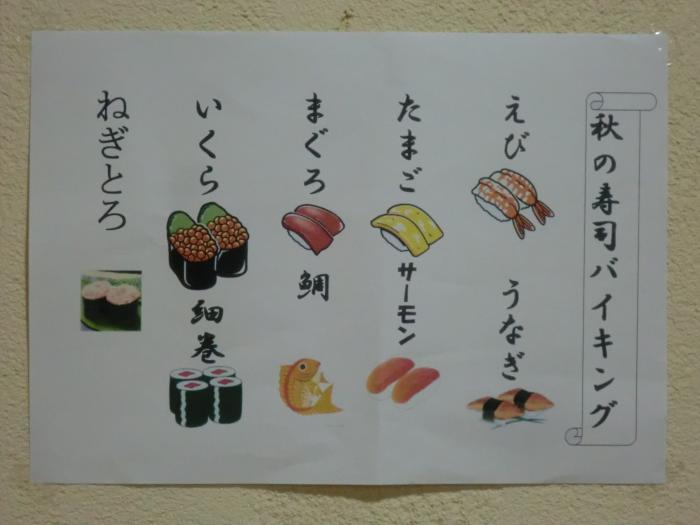 秋の寿司バイキング
えび
うなぎ
たまご
サーモン
まぐろ
鯛
いくら
細巻
ねぎとろ